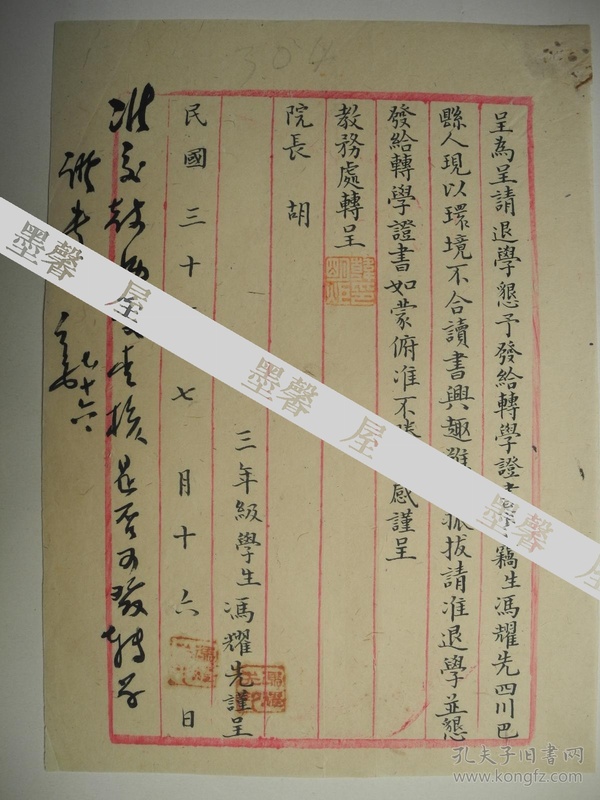 呈為呈請退學懇予發給轉學證書竊生馮耀先四川巴
縣人現以環境不合讀書興趣難振拔請准退學並懇
發給轉學證書如蒙俯准不感謹呈
教務處轉呈
院長 胡
三年級學生 馮耀先謹呈
民國三十 七月十六日
查核是否可發轉學
七十六
墨馨 屋
墨馨 屋
墨馨 屋
孔夫子旧书网
www.kongfz.com